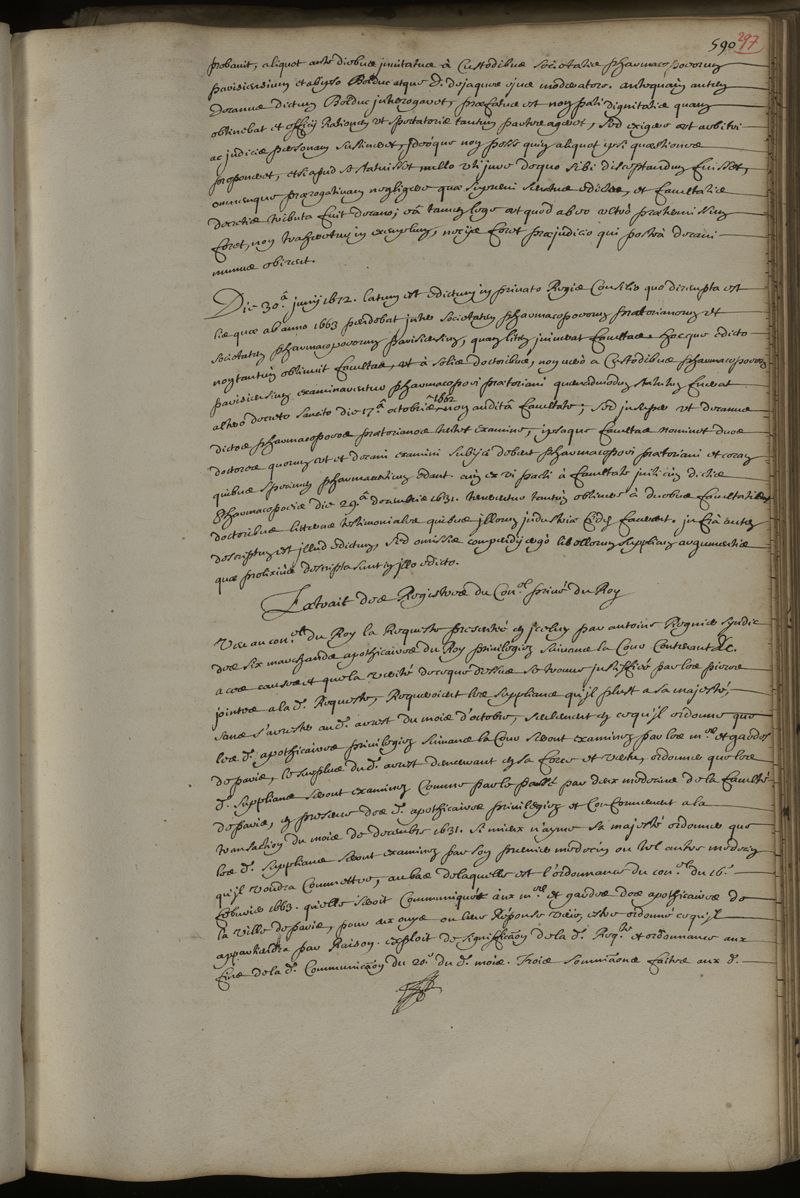 590 297
probavit, aliquot ante diebus invitatus à Custodibus Societatis pharmacopoeorum
parisiensium et ab ipso Bolduc atque D. dejaques ejus moderatore. antequam autem
decanus dictum Bolduc interrogaret, præfatus est non pati dignitatis quam
obtinebat et officij rationem ut spectatoris tantum partes ageret, sed exigere ut arbitri
ac judicis personam sustineret, ideoque non posse quin aliquot ipsi quæstiones
proponeret, etsi apud se statuisset nullo uti jure deque sibi disceptandum fuisset,
omnemque prærogativam negligere quæ supremi senatus edictis, et facultatis
decretis tributa fuit decano; eâ tamen lege ut quod ab eo ultrò prætermissum
foret, non traheretur in exemplum, nec ipse foret præjudicio qui posteà decani
munus obiret.
Die 30.ª junij 1672. latum est edictum in privato Regis Consilio quo dirempta est
lis quæ ab anno 1663 pendebat inter Societatem pharmacopoeorum prætorianorum et
Societatem pharmacopoeorum parisiensium, quam litem juverat facultas. Hocque edicto
non tantùm obtinuit facultas, ut à solis doctoribus, non verò a Custodibus pharmacopoeorum
parisiensium examinarentur pharmacopoei prætoriani quemadmodum statutum fuerat
altero decreto senatus die 17.ª octobris 1662 non auditâ facultate; sed insuper ut decanus
dictos pharmacopoeos prætorianos examine, ipsaque facultas nominet duos
doctores quorum et decani examini subijci debent pharmacopoei prætoriani et coram
quibus specimen pharmaceuticum edant. cum ex vi pacti à facultate initi cum dictis
Pharmacopoeis die 29.ª decembris 1631. tenerentur tantùm obtinere à duobus facultatis
doctoribus litteras testimoniales quibus illorum industriæ fidem facerent. infrà autem
descriptum est illud edictum, sed omissis compendij ergò libellorum supplicum argumentis
quæ prolixiùs descripta sunt in illo edicto.
Extrait des Registres du Con.el privé du Roy
Veu au con.el du Roy la Requeste presentée en iceluy par antoine Regnier syndic
des six marchands apothicaires du Roy privilegiez suivans la Cour Contenant &c.
a ces causes et que la verité de ce que dessus se trouve justifiée par les pieces
jointes a la d.e Requeste, Requeroient les supplians qu'il plust a sa majesté,
sans s'arrester au d.t arrest du mois d'octobre, seulement en ce qu'il ordonne que
les d.s apothicaires privilegiez suivans la Cour seront examinez par les m.es et gardes
de paris, le surplus du d.t arrest demeurant en sa force et vertu, ordonner que les
d.s supplians seront examinez Comme par le passé par deux medecins de la faculté
de paris, en presence des d.s apothicaires privilegiez et Conformement a la
transaction du mois de decembre 1631. si mieux n'ayme sa majesté ordonner que
les d.s supplians seront examinez par son premier medecin ou tel autre medecin
qu'il voudra Commettre, au bas de laquelle est l'ordonnance du con.el du 16.e
febvrier 1663. qu'elle seroit Communiquée aux m.es et gardes des apothicaires de
la ville de paris, pour eux ouys ou leur Reponse veüe, estre ordonné ce qu'il
appartiendra par Raison. exploit de signification de la d.e Req.te et ordonnance aux
fins de la d.e Communicãon du 20.e du d.t mois. Trois sommãons faites aux d.s